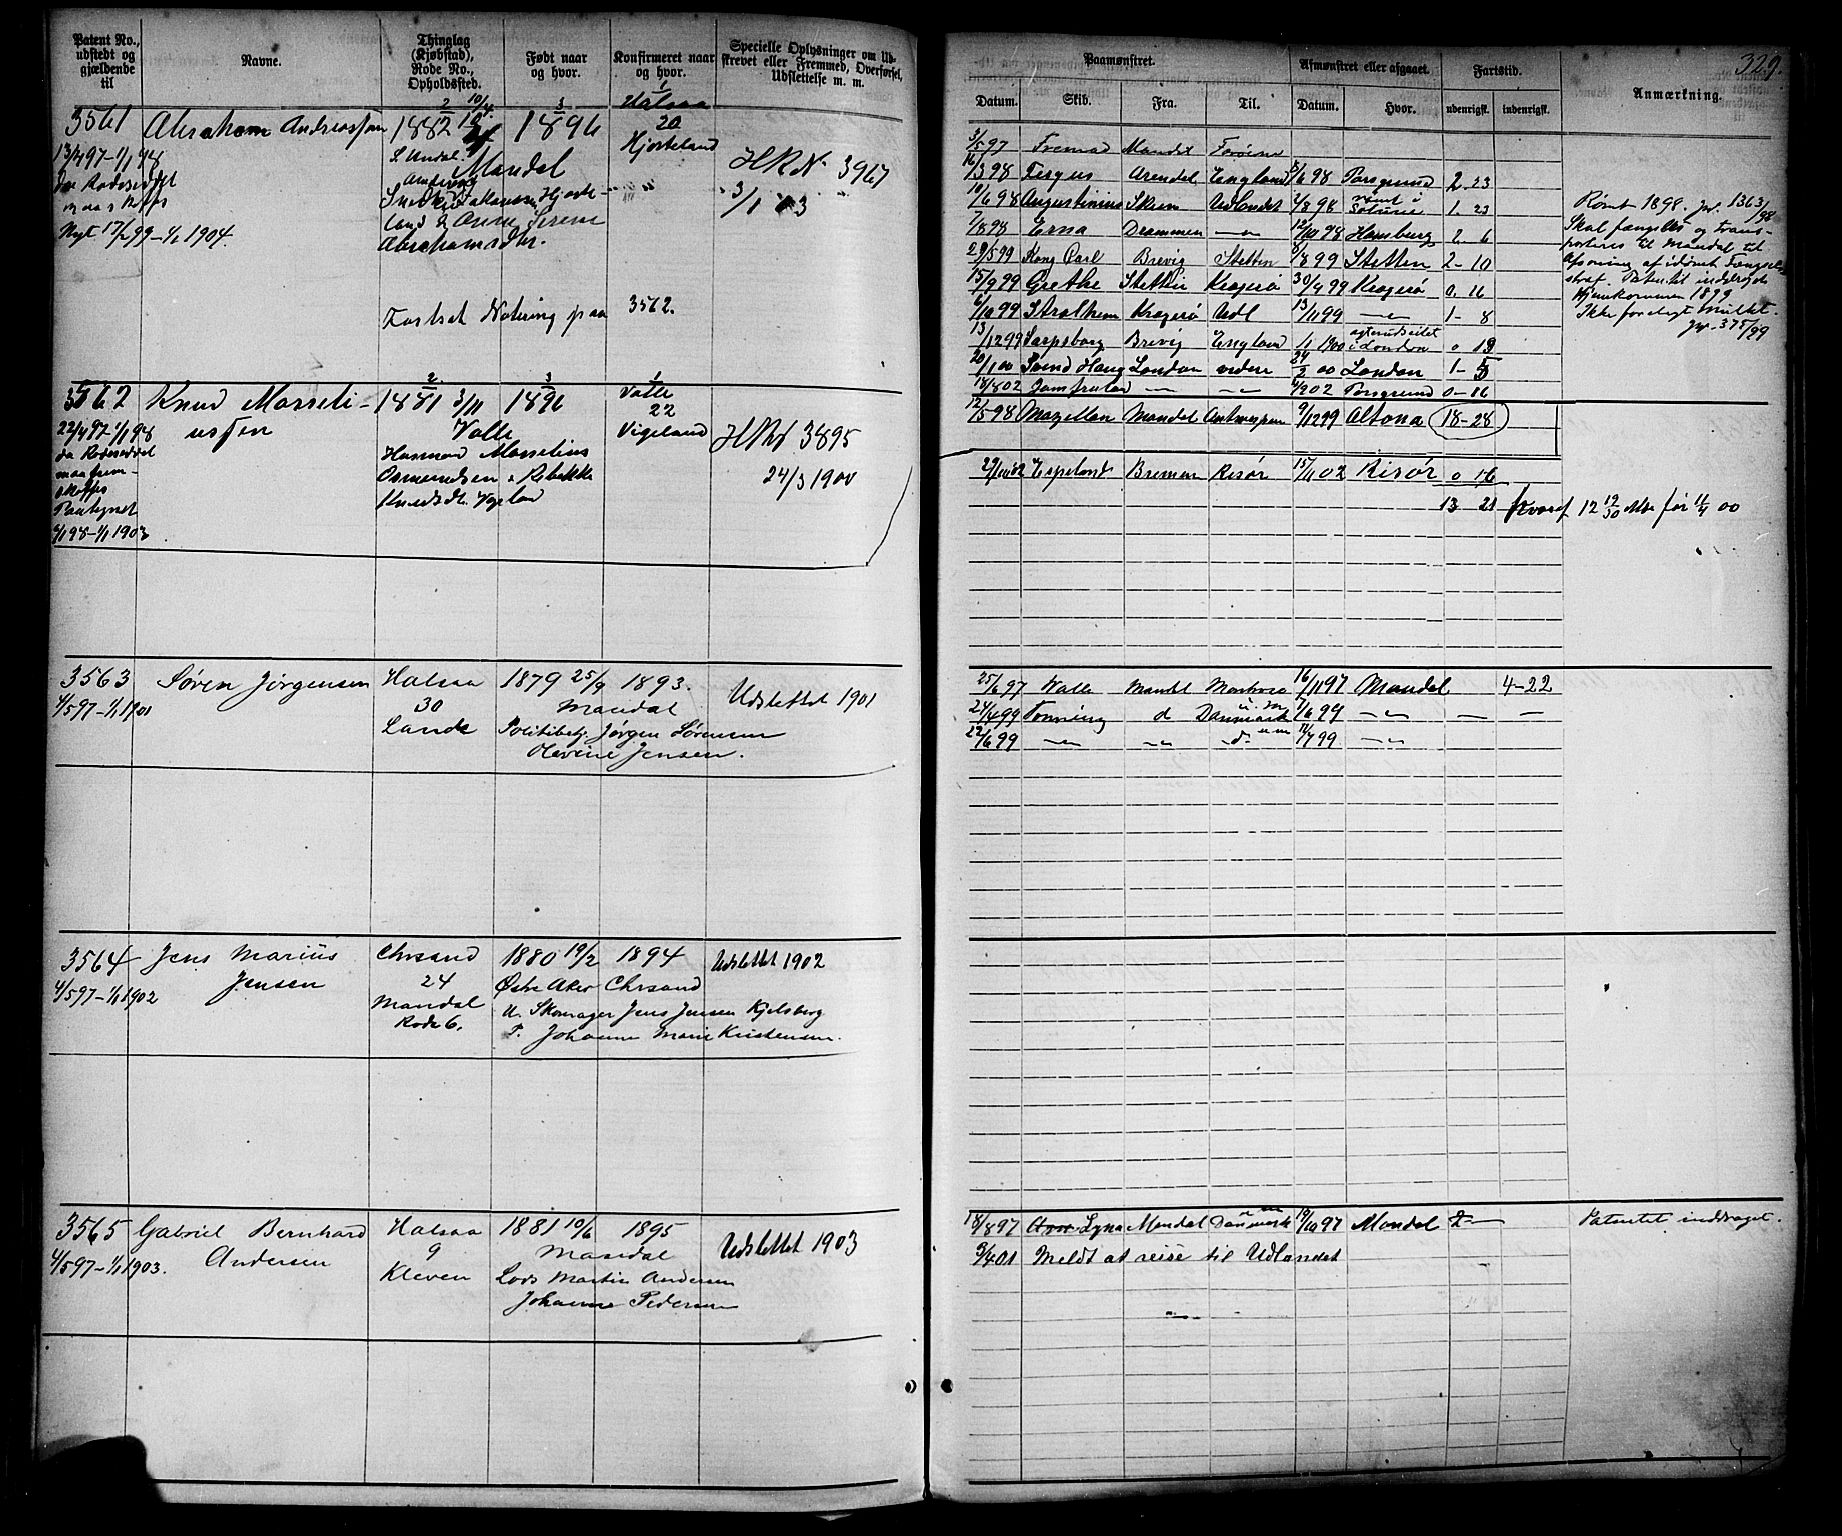 329.
Patent No., udstedt og gjældende til
Navne.
Thinglag (Kjøbstad), Rode No., Opholdssted.
Født naar og hvor.
Konfirmeret naar og hvor.
Specielle Oplysninger om Udskrevet eller Fremmed, Overførsel, Udslettelse m. m.
Paamønstret.
Afmønstret eller afgaaet.
Fartstid.
Anmærkning.
Datum.
Skib.
Fra.
Til.
Datum.
Hvor.
udenrigsk.
indenrigsk.
3561
Abraham Andreassen
2 10/4 3 1 Halsaa
1882 1896 20
13/4 97-1/1 98
S. Undal. Mandal Hjorteland
Nyt 17/2 99-1/1 1904.
Abrahamsdtr.
HR No 3967
3/1 03
Fortsat Notering paa 3562.
3/5 97 Fremad Mandal
16/3 98 Fergus Arendal England 5/6 98 Porsgrund 2-23
10/6 98 Augustinius Skien Udlandet 4/8 98 rømt i 1-23
7/8 98 Erna Drammen -"- 12/10 98 Hamburg 2-6
29/5 99 Kong Carl Brevig Stettin 8/8 99 Stettin 2-10
15/9 99 Grethe Stettin Kragerø 30/9 99 Kragerø 0.16
6/10 99 Stralheim Kragerø Udl 13/11 99 -"- 1-8
13/12 99 Sarpsborg Brevig England 1/1 1900 i London 0 19
20/1 00 Svend Haug London videre 24/2 00 London 1-5
18/8 02 Jomfruland -"- -"- 4/9 02 Porsgrund 0-16
Rømt 1898. jvf. 1363/98
Skal fængsles og trans-
porteres til Mandal til
afsoning af idømt Fængsels
straf. Patentet inddrages
Hjemkommen 1899
Ikke forelagt Mulkt.
jvf. 375/99
3562
Knud Masseli-
ussen
2 3 1
1881 3/11 1896 Valle 22
Valle Vigeland
22/4 97-1/1 98
Masselius
Osmundsen
1/1 98-1/1 1903
HR No 3895
24/3 1900
12/5 98 Magellan Mandal Antwerpen 9/12 99 Altona 18-28
Egeland Bremen Risør 15/11 02 Risør 0 16
13 21 Hvoraf 12 19/30 Mdr før 11/4 00
3563
4/5 97-1/1 1901
Søren Jørgensen
Halsaa
30
Lande
1879 25/9 1893.
Mandal
Politibetj. Jørgen Sørensen
Olevine Jensen.
Udslettet 1901
25/6 97 Valle Mandal 16/11 97 Mandal 4-22
24/4 99 Tønning d Danmark 1/6 99 -"- - -
22/6 99 -"- -"- -d- 11/7 99 -"-
3564
4/5 97-1/1 1902
Jens Marius
Jensen
Chrsand
24
Mandal
Rode 6.
1880 19/2 1894
Østre Aker Chrsand
U. Skomager Jens Jensen Kjelsberg
P. Johanne Marie Kristensen.
Udslettet 1902
3565
4/5 97-1/1 1903.
Gabriel Bernhard
Andersen
Halsaa
9
Kleven
1881 10/6 1895
Mandal
Lods Martin Andersen
Johanne Pedersen
Udslettet 1903
18/8 97 Lyna Mandal Danmark 19/10 97 Mandal 2-
Patentet inddraget.
3/4 01 Meldt at reise til Udlandet